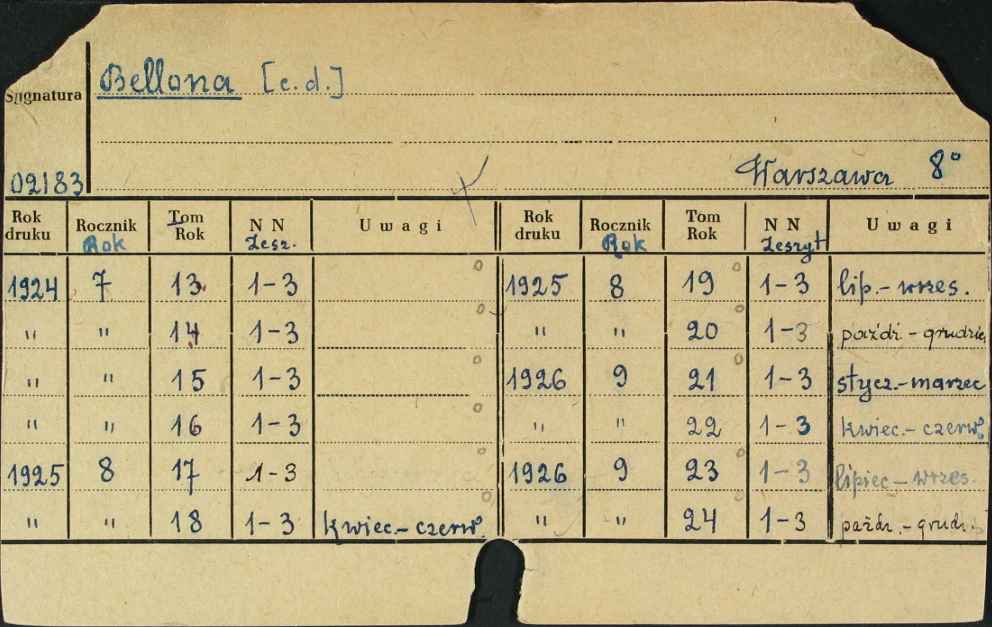 Bellona [c.d.]
Sygnatura
02183
Warszawa 8°
Rok druku Rocznik Rok Tom Rok NN Zesz. Uwagi Rok druku Rocznik Rok Tom Rok NN Zeszyt Uwagi
1924 7 13 1-3 1925 8 19 1-3 lip.- wrzes.
" " 14 1-3 " " 20 1-3 paźdź - grudzie
" " 15 1-3 1926 9 21 1-3 stycz.-marzec
" " 16 1-3 " " 22 1-3 kwiec.- czerw.
1925 8 17 1-3 1926 9 23 1-3 lipiec - wrzes.
" " 18 1-3 kwiec.- czerw. " " 24 1-3 paźdź.-grud.